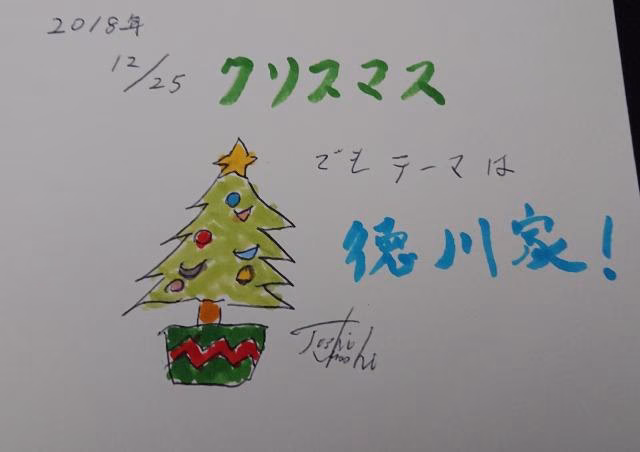 2018年
12/25 クリスマス
でも テーマは
徳川家!
Toshi